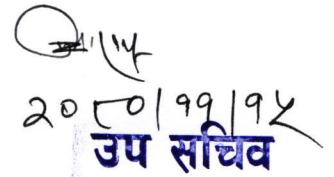 २०८०|११|१५
उप सचिव